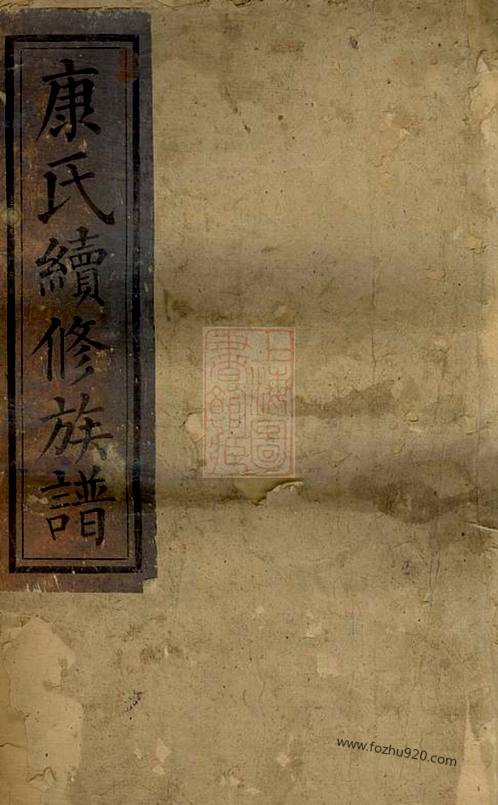 康氏續修族譜
上海圖
書館藏
www.fozhu920.com